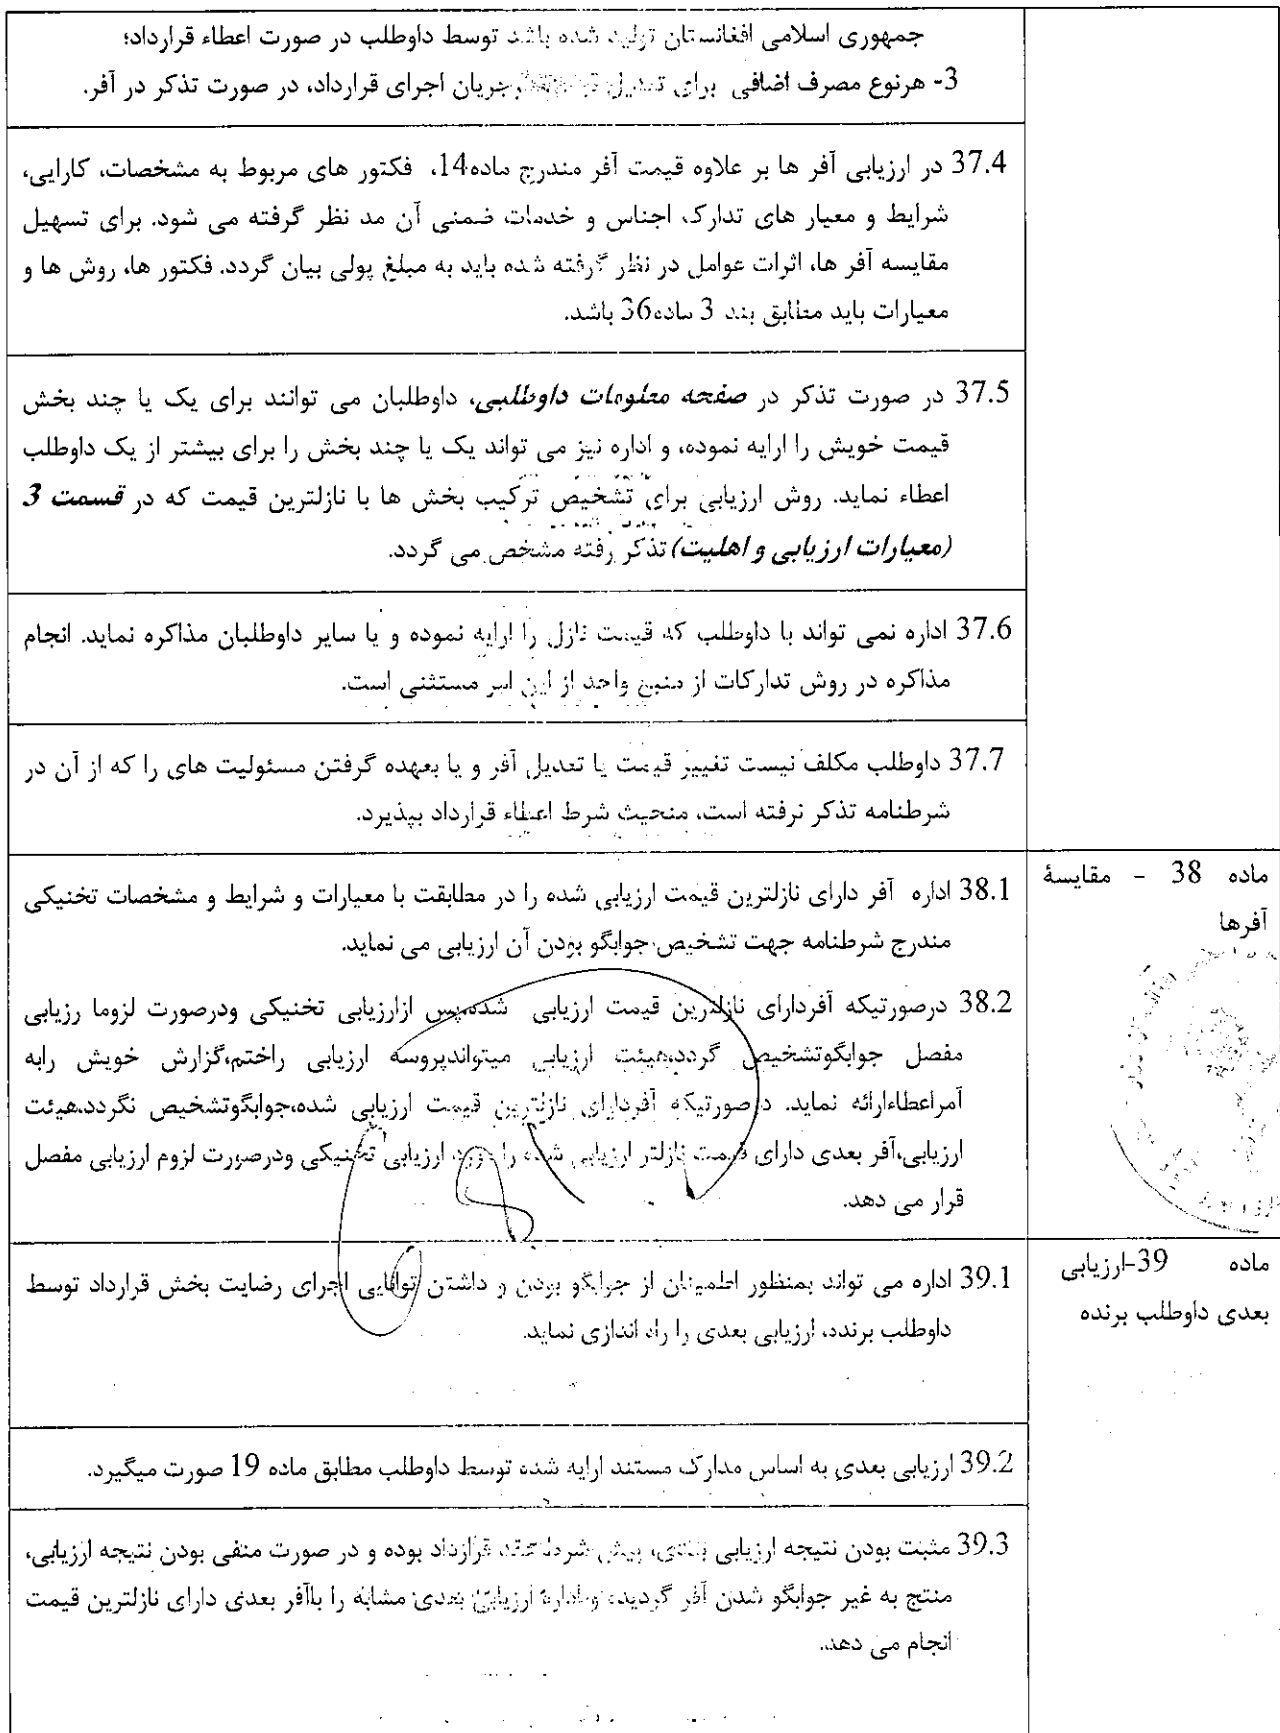 جمهوری اسلامی افغانستان تولید شده باشد توسط داوطلب در صورت اعطاء قرارداد؛
3- هرنوع مصرف اضافی برای تعدیل جریان اجرای قرارداد، در صورت تذکر در آفر.
37.4 در ارزیابی آفر ها بر علاوه قیمت آفر مندرج ماده14، فکتور های مربوط به مشخصات، کارایی،
شرایط و معیار های تدارک اجناس و خدمات ضمنی آن مد نظر گرفته می شود. برای تسهیل
مقایسه آفر ها، اثرات عوامل در نظر گرفته شده باید به مبلغ پولی بیان گردد. فکتور ها، روش ها و
معیارات باید مطابق بند 3 ماده36 باشد.
37.5 در صورت تذکر در صفحه معلومات داوطلبی، داوطلبان می توانند برای یک یا چند بخش
قیمت خویش را ارایه نموده، و اداره نیز می تواند یک یا چند بخش را برای بیشتر از یک داوطلب
اعطاء نماید. روش ارزیابی برای تشخیص ترکیب بخش ها با نازلترین قیمت که در قسمت 3
(معیارات ارزیابی و اهلیت) تذکر رفته مشخص می گردد.
37.6 اداره نمی تواند با داوطلب که قیمت نازل را ارایه نموده و یا سایر داوطلبان مذاکره نماید. انجام
مذاکره در روش تدارکات از منبع واحد از این امر مستثنی است.
37.7 داوطلب مکلف نیست تغییر قیمت یا تعدیل آفر و یا بعهده گرفتن مسئولیت های را که از آن در
شرطنامه تذکر نرفته است، منحیث شرط اعطاء قرارداد بپذیرد.
ماده 38 - مقایسۀ
آفرها
38.1 اداره آفر دارای نازلترین قیمت ارزیابی شده را در مطابقت با معیارات و شرایط و مشخصات تخنیکی
مندرج شرطنامه جهت تشخیص جوابگو بودن آن ارزیابی می نماید.
38.2 درصورتیکه آفردارای نازلترین قیمت ارزیابی شده،پس ازارزیابی تخنیکی ودرصورت لزوما رزیابی
مفصل جوابگوتشخیص گردد،هیئت ارزیابی میتواندپروسه ارزیابی راختم،گزارش خویش رابه
آمراعطاءارائه نماید. درصورتیکه آفردارای نازلترین قیمت ارزیابی شده،جوابگوتشخیص نگردد،هیئت
ارزیابی،آفر بعدی دارای قیمت نازلتر ارزیابی شده را مورد ارزیابی تخنیکی ودرصورت لزوم ارزیابی مفصل
قرار می دهد.
ماده 39-ارزیابی
بعدی داوطلب برنده
39.1 اداره می تواند بمنظور اطمینان از جوابگو بودن و داشتن توانایی اجرای رضایت بخش قرارداد توسط
داوطلب برنده، ارزیابی بعدی را راه اندازی نماید.
39.2 ارزیابی بعدی به اساس مدارک مستند ارایه شده توسط داوطلب مطابق ماده 19 صورت میگیرد.
39.3 مثبت بودن نتیجه ارزیابی بعدی، پیش شرط عقد قرارداد بوده و در صورت منفی بودن نتیجه ارزیابی،
منتج به غیر جوابگو شدن آفر گردیده و اداره ارزیابی بعدی مشابه را باآفر بعدی دارای نازلترین قیمت
انجام می دهد.